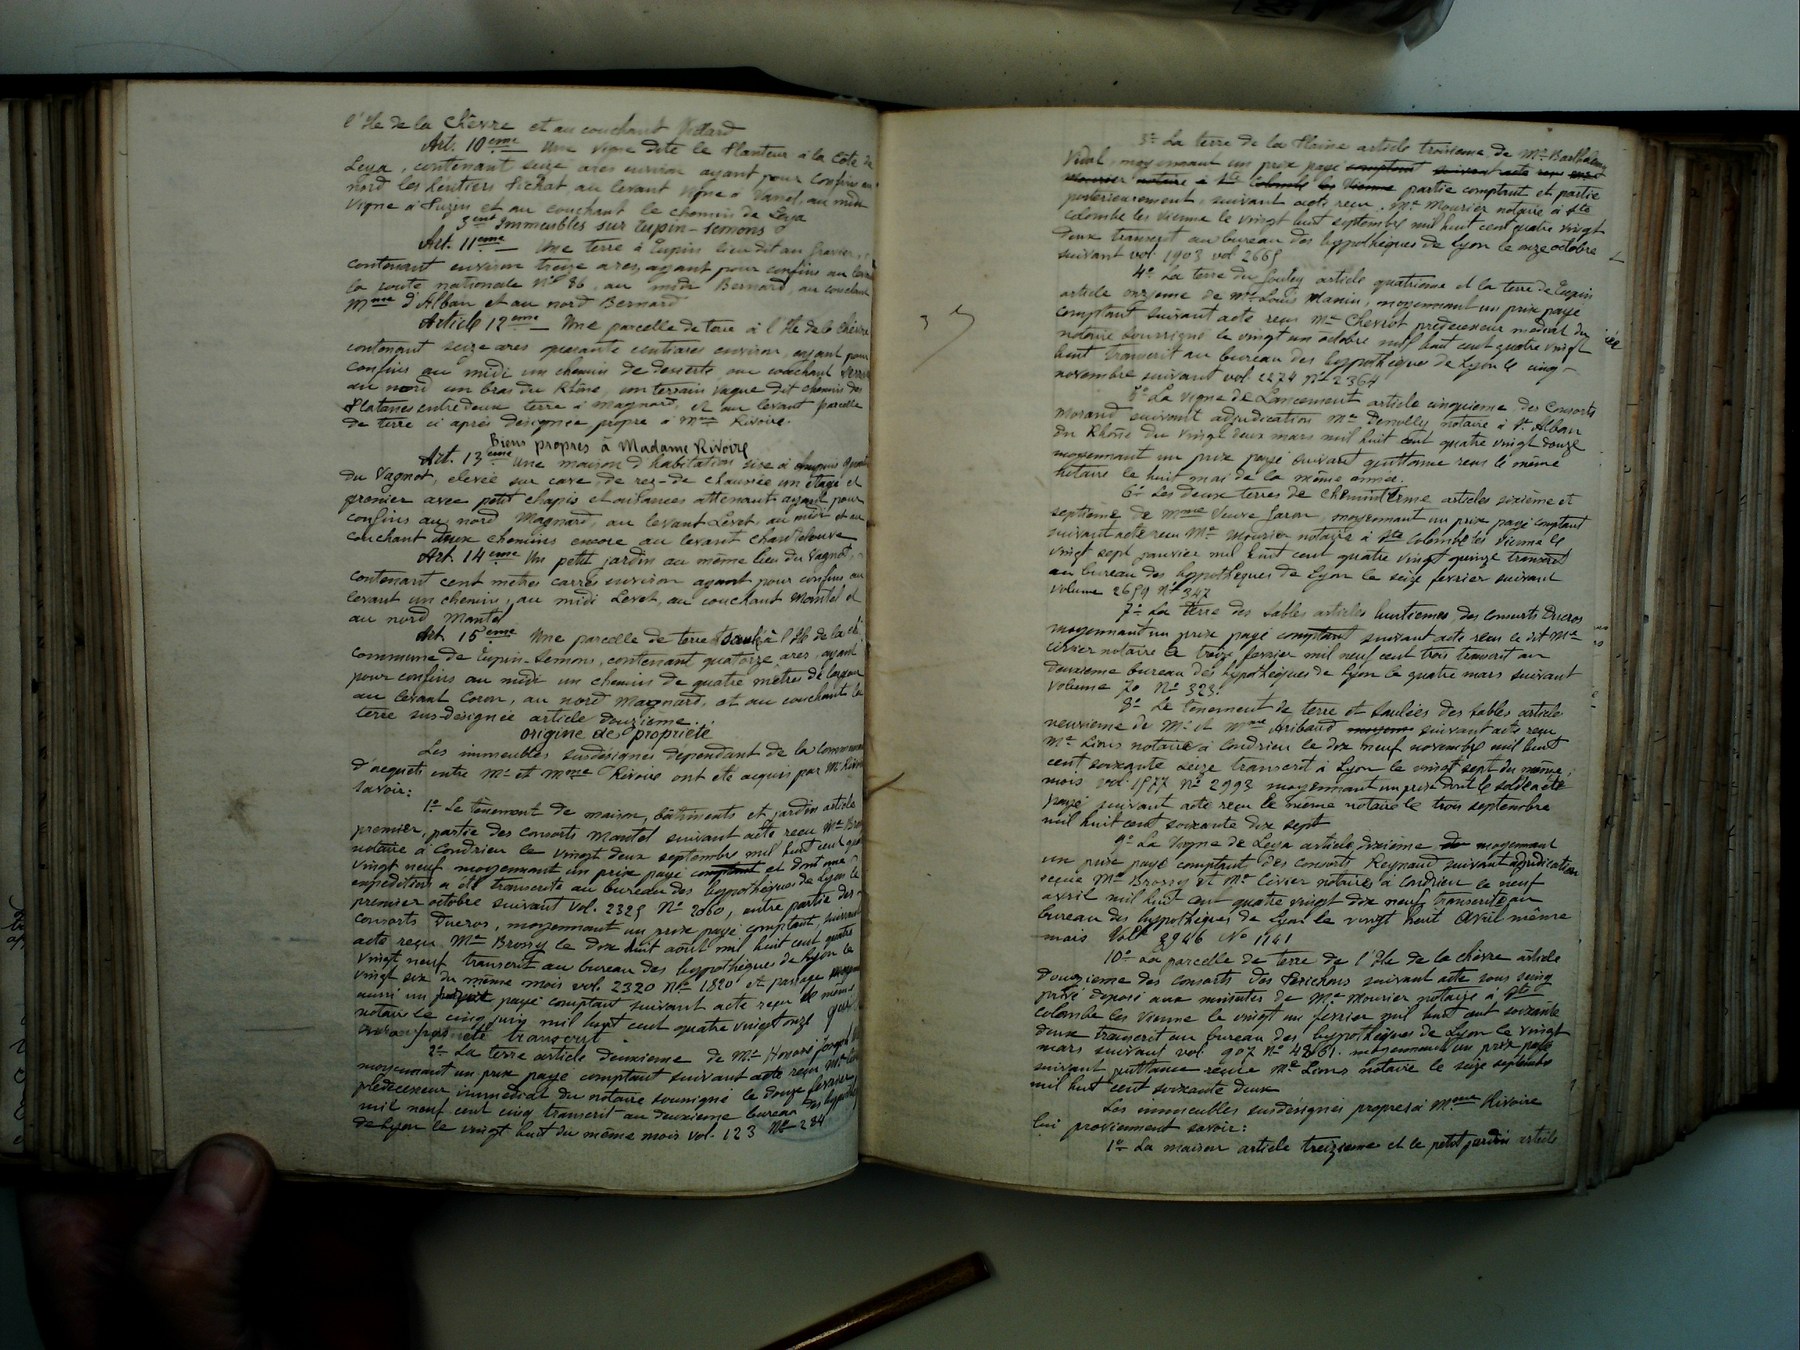 l'Ile de la Chèvre et au couchant Vietard
Art. 10ème Une vigne dite le Planteur à la Côte de
Leya, contenant seize ares environ ayant pour confins au
nord les héritiers Pichat au levant vigne à Vanel, au midi
vigne à Puzin et au couchant le chemin de Leya
3ent Immeubles sur Tupin-Semons
Art. 11ème Une terre à Tupin lieu dit au Gravier,
contenant environ treize ares, ayant pour confins au levant
la route nationale No 86, au midi Bernard, au couchant
Mme d'Alban et au nord Bernard
Article 12ème Une parcelle de terre à l'Ile de la Chèvre
contenant seize ares quarante centiares environ, ayant pour
confins au midi un chemin de desserte au couchant
au nord un bras du Rhône, un terrain vague dit chemin des
Platanes entre deux terre à Magnard, et au levant parcelle
de terre ci après désignée propre à Mme Rivoire.
Biens propres à Madame Rivoire
Art. 13ème Une maison d'habitation sise à Ampuis quartier
du Vagnot, élevée sur cave, de rez-de chaussée un étage et
grenier avec petit chapis et aisances attenants ayant pour
confins au nord Magnard, au levant Levet, au midi et au
couchant deux chemins encore au levant Chantelouve
Art. 14ème Un petit jardin au même lieu du Vagnot,
contenant cent mètres carrés environ ayant pour confins au
levant un chemin, au midi Levet, au couchant Mantel et
au nord Mantel
Art. 15ème Une parcelle de terre à l'Ile de la
commune de Tupin-Semons, contenant quatorze ares, ayant
pour confins au midi un chemin de quatre mètres de largeur
au levant Coron, au nord Magnard, et au couchant la
terre sus-désignée article douzième.
Origine de propriété
Les immeubles susdésignés dépendant de la communauté
d'acquets entre Mr et Mme Rivoire ont été acquis par Mr Rivoire
savoir:
1o Le tènement de maison, bâtiments et jardin article
premier, partie des consorts Mantel suivant acte reçu Me Brossy
notaire à Condrieu le vingt deux septembre mil huit cent quatre
vingt neuf moyennant un prix payé comptant et dont une
expédition a été transcrite au bureau des hypothèques de Lyon le
premier octobre suivant vol. 2325 No 2060, autre partie des
consorts Ducros, moyennant un prix payé comptant, suivant
acte reçu Me Brossy le dix huit août mil huit cent quatre
vingt neuf transcrit au bureau des hypothèques de Lyon le
vingt six du même mois vol. 2320 No 1820 et partie
aussi un payé comptant suivant acte reçu le même
notaire le cinq juin mil huit cent quatre vingt onze
transcrit
2o La terre article deuxième de Mr Honoré Joseph
moyennant un prix payé comptant suivant acte reçu Me
prédécesseur immédiat du notaire soussigné le douze février
mil neuf cent cinq transcrit au deuxième bureau des hypothèques
de Lyon le vingt huit du même mois vol. 123 No 284
3o La terre de la Plaine article troisième de Mr Barthélemy
Vidal, moyennant un prix payé comptant suivant acte reçu
Mourier notaire à Ste Colombe les Vienne partie comptant et partie
postérieurement, suivant acte reçu Me Mourier notaire à Ste
Colombe les Vienne le vingt huit septembre mil huit cent quatre vingt
deux transcrit au bureau des hypothèques de Lyon le onze octobre
suivant vol 1903 vol 2665
4o La terre du article quatrième et la terre de Tupin
article onzième de Mr Louis Manin, moyennant un prix payé
comptant suivant acte reçu Me Chevrot prédécesseur médiat du
notaire soussigné le vingt un octobre mil huit cent quatre vingt
huit transcrit au bureau des hypothèques de Lyon le cinq
novembre suivant vol 2274 No 2364
5o La vigne de Lancement article cinquième, des Consorts
Morand suivant adjudication Me notaire à St Alban
du Rhône du vingt deux mars mil huit cent quatre vingt douze
moyennant un prix payé suivant quittance reçu le même
notaire le huit mai de la même année.
6o Les deux terres de articles sixième et
septième de Mme Veuve Jaron, moyennant un prix payé comptant
suivant acte reçu Me Mourier notaire à Ste Colombe les Vienne le
vingt sept janvier mil huit cent quatre vingt quinze transcrit
au bureau des hypothèques de Lyon le seize février suivant
volume 2659 No 347
7o La terre des Sables articles huitième, des Consorts Ducros
moyennant un prix payé comptant suivant acte reçu le dit Me
Civier notaire le treize février mil neuf cent trois transcrit au
deuxième bureau des hypothèques de Lyon le quatre mars suivant
volume 70 No 323.
8o Le tènement de terre et saulées des Sables article
neuvième de Mr et Mme Aribaud moyenn suivant acte reçu
Me Lions notaire à Condrieu le dix neuf novembre mil huit
cent soixante seize transcrit à Lyon le vingt sept du même
mois vol. 1577 No 2993 moyennant un prix dont le solde a été
payé suivant acte reçu le même notaire le trois septembre
mil huit cent soixante dix sept
9o La Vigne de Leya article dixième de moyennant
un prix payé comptant des consorts Reynaud suivant adjudication
reçue Me Brossy et Me Civier notaires à Condrieu le neuf
avril mil huit cent quatre vingt dix neuf transcrite au
bureau des hypothèques de Lyon le vingt huit Avril même
mois Vole 2946 No 1141
10o La parcelle de terre de l'Ile de la Chèvre article
douzième des consorts des Périchons suivant acte sous seing
privé déposé aux minutes de Me Mourier notaire à Ste
Colombe les Vienne le vingt un février mil huit cent soixante
deux transcrit au bureau des hypothèques de Lyon le vingt
mars suivant vol. 907 No 48161. moyennant un prix payé
suivant quittance reçue Me Lions notaire le seize septembre
mil huit cent soixante deux
Les immeubles susdésignés propres à Mme Rivoire
lui proviennent savoir:
1o La maison article treizième et le petit jardin article